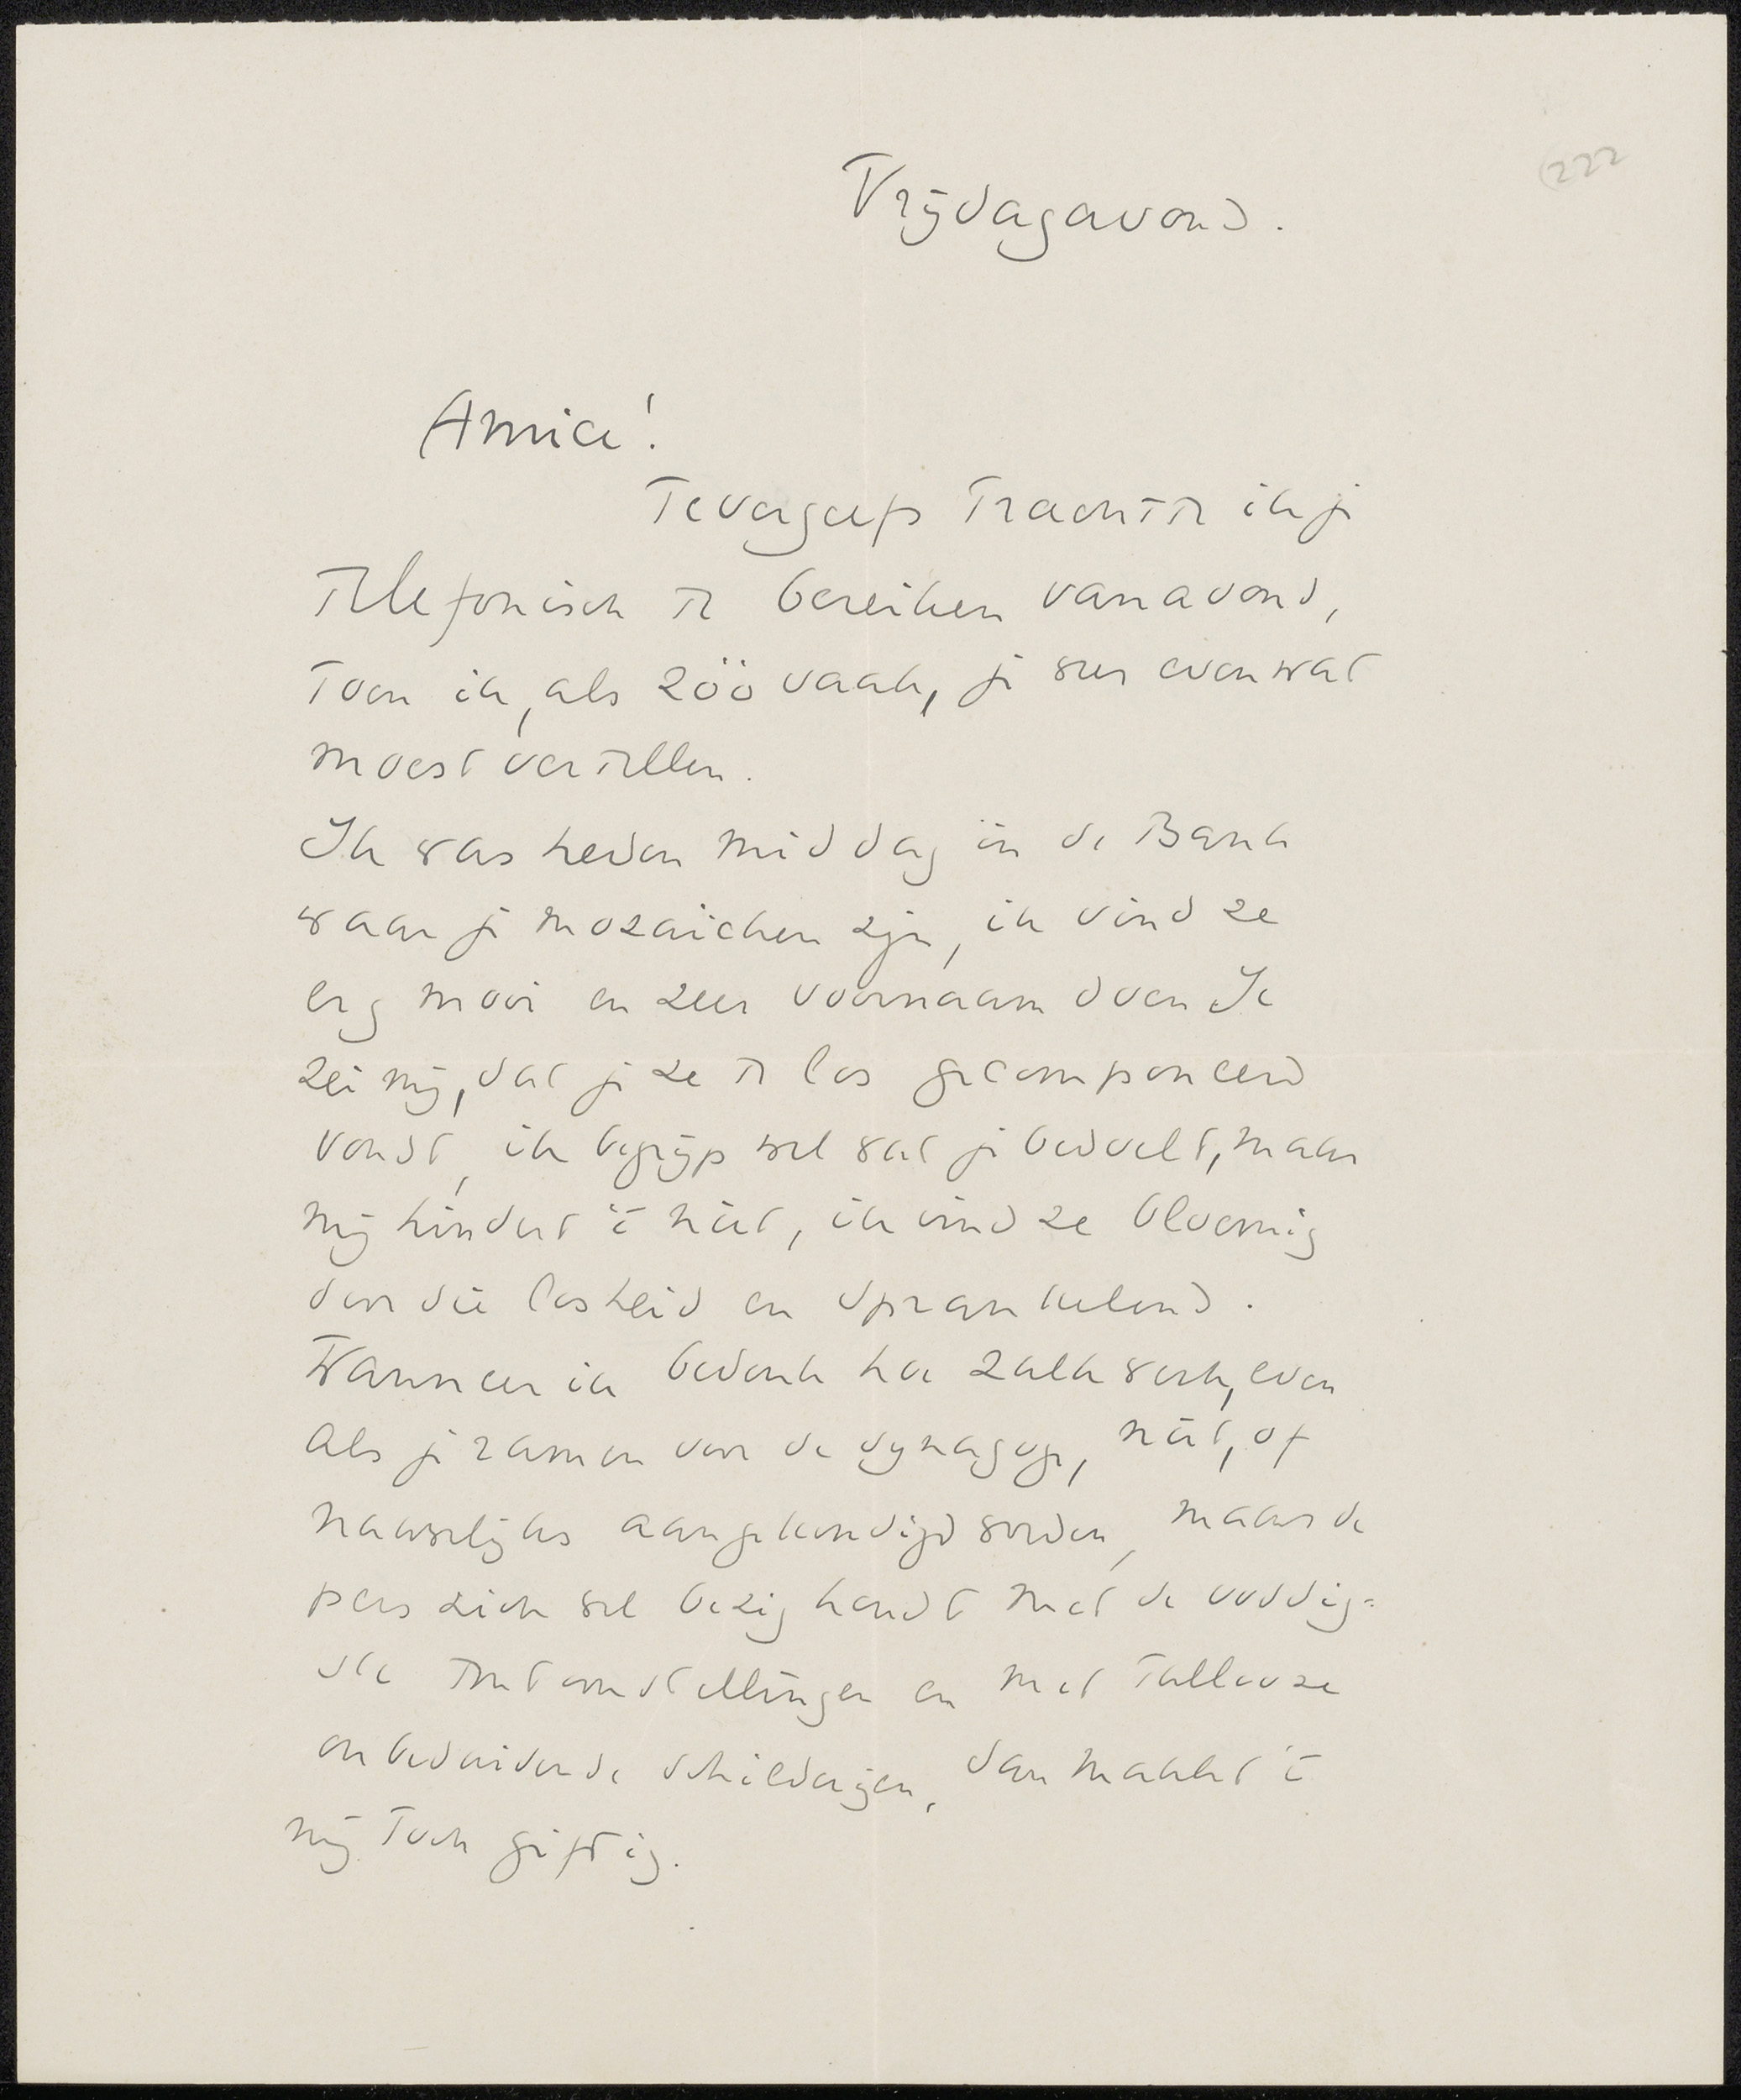 222
Vrijdagavond.
Amice!
Tevergeefs trachtte ik je
telefonisch te bereiken vanavond,
toen ik, als zöö vaak, je weer even wat
moest vertellen.
Ik was heden middag in de Bank
waar je mozaïcken zijn, ik vind ze
erg mooi en zeer voornaam doen Je
zei mij, dat je ze te los gecomponeerd
vondt, ik begrijp wel wat je bedoelt, maar
mij hindert 't niet, ik vind ze bloemig
door die losheid en sprankelend.
Wanneer ik bedenk hoe zulk werk, even
als je ramen voor de synagoge, niet, of
nauwelijks aangekondigd worden, maar de
pers zich wel bezig houdt met de voddig-
ste tentoonstellingen en met tallooze
onbeduidende schilderijen, dan maakt 't
mij toch giftig.